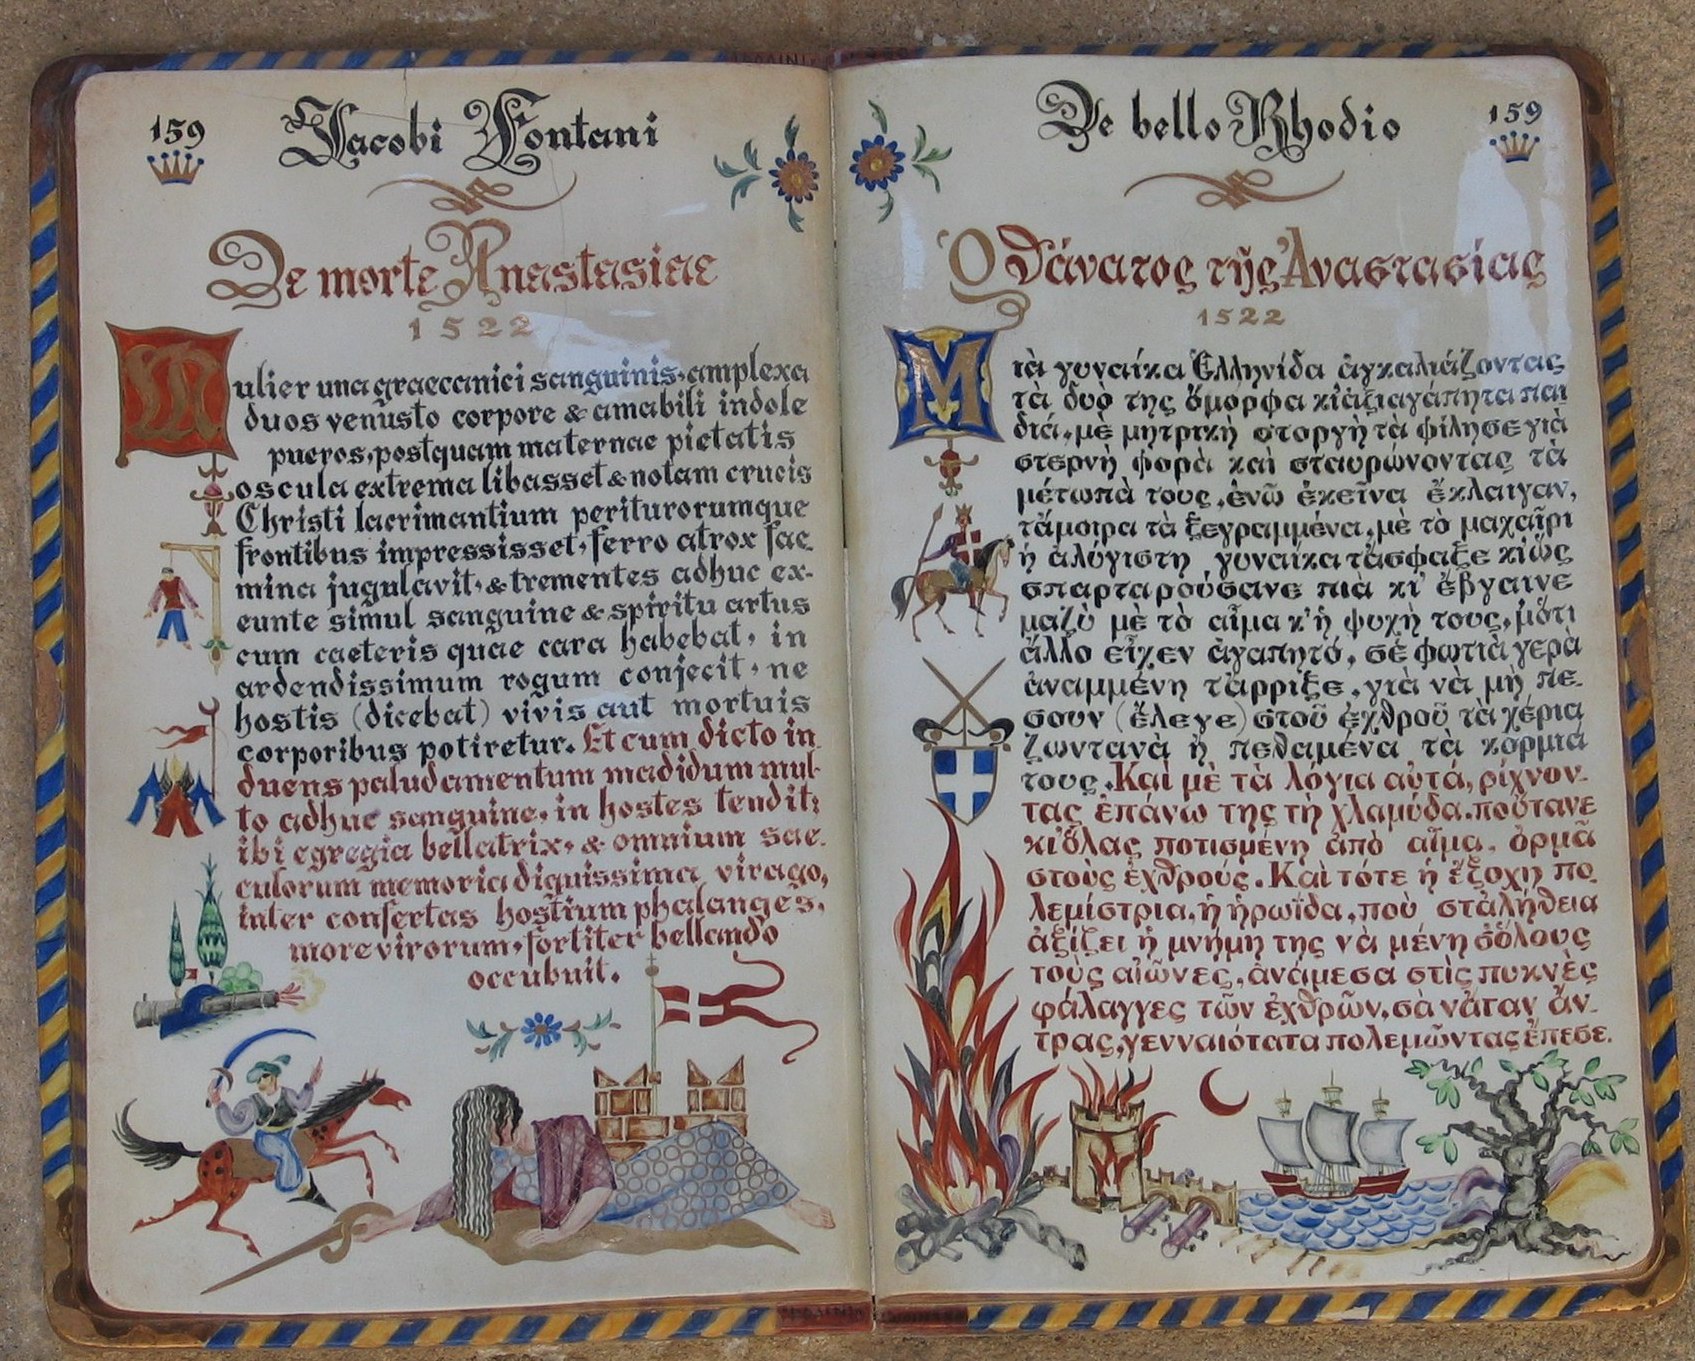 159
Jacobi Fontani
De morte Anastasiae
1522
Mulier una graecanici sanguinis, amplexa
duos venusto corpore & amabili indole
pueros, postquam maternae pietatis
oscula extrema libasset & notam crucis
Christi lacrimantium periturorumque
frontibus impressisset, ferro atrox fae
mina jugulavit, & trementes adhuc ex-
eunte simul sanguine & spiritu artus
cum caeteris quae cara habebat, in
ardendissimum rogum conjecit, ne
hostis (dicebat) vivis aut mortuis
corporibus potiretur. Et cum dicto in
duens paludamentum madidum mul-
to adhuc sanguine, in hostes tendit:
ibi egregia bellatrix, & omnium sae-
culorum memoria diquissima virago,
inter consertas hostium phalanges,
more virorum, fortiter bellando
occubuit.
De bello Rhodio
159
Ὁ θάνατος τῆς Ἀναστασίας
1522
Μιὰ γυναίκα Ἑλληνίδα ἀγκαλιάζοντας
τὰ δυὸ της ὄμορφα κι ἀξιαγάπητα παι
διά, μὲ μητρικὴ στοργὴ τὰ φίλησε γιὰ
στερνὴ φορὰ καὶ σταυρώνοντας τὰ
μέτωπὰ τους, ἐνῶ ἐκεῖνα ἔκλαιγαν,
τἄμοιρα τὰ ξεγραμμένα, μὲ τὸ μαχαῖρι
ἡ ἀλύγιστη γυναίκα τἄσφαξε κι ὥς
σπαρταρούσανε πιὰ κι' ἔβγαινε
μαζὺ μὲ τὸ αἷμα κ' ἡ ψυχὴ τους, μ' ὅτι
ἄλλο εἶχεν ἀγαπητό, σὲ φωτιὰ γερὰ
ἀναμμένη τἄρριξε, γιὰ νὰ μὴ πέ-
σουν (ἔλεγε) στοῦ ἐχθροῦ τὰ χέρια
ζωντανὰ ἢ πεθαμένα τὰ κορμιά
τους. Καὶ μὲ τὰ λόγια αὐτά, ρίχνον-
τας ἐπάνω της τὴ χλαμύδα, ποὔτανε
κι ὅλας ποτισμένη ἀπὸ αἷμα, ὁρμᾶ
στοὺς ἐχθρούς. Καὶ τότε ἡ ἔξοχη πο
λεμίστρια, ἡ ἡρωΐδα, ποὺ στἀλήθεια
ἀξίζει ἡ μνήμη της νὰ μένη σ' ὅλους
τοὺς αἰῶνες, ἀνάμεσα στὶς πυκνὲς
φάλαγγες τῶν ἐχθρῶν, σὰ νἄταν ἄν-
τρας, γενναιότατα πολεμῶντας ἔπεσε.